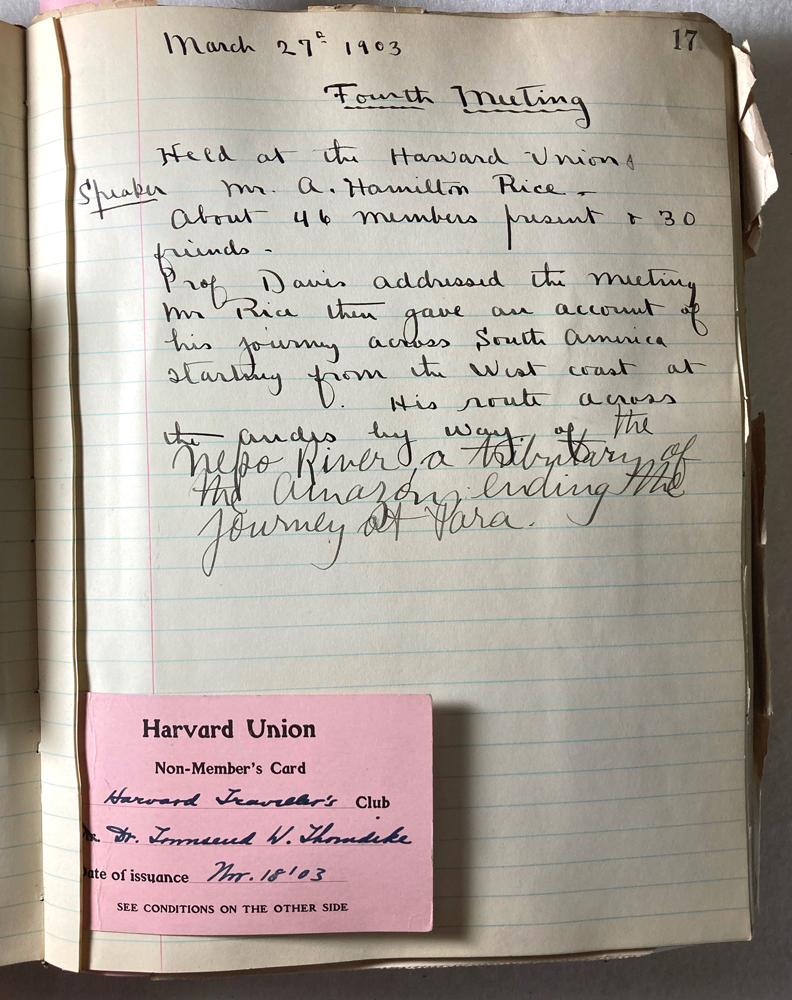 17
March 27th 1903
Fourth Meeting
Held at the Harvard Union.
Speaker Mr. A. Hamilton Rice.
About 46 members present & 30
friends.
Prof Davis addressed the meeting
Mr Rice then gave an account of
his journey across South America
starting from the West coast at
. His route across
the andes by way of the
Nepo River, a tributary of
the Amazon, ending the
journey at Para.
Harvard Union
Non-Member's Card
Harvard Traveller's Club
Dr. Townsend W. Thorndike
Date of issuance Nov. 18 '03
SEE CONDITIONS ON THE OTHER SIDE